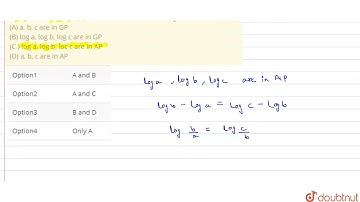 (A) a, b, c are in GP
(B) log a, log b, log c are in GP
(C) log a, log b, loc c are in AP
(D) a, b, c are in AP
Option1 A and B
Option2 A and C
Option3 B and D
Option4 Only A
log a , log b , log c are in AP
log b - log a = log c - log b
log b/a = log c/b
doubtnut